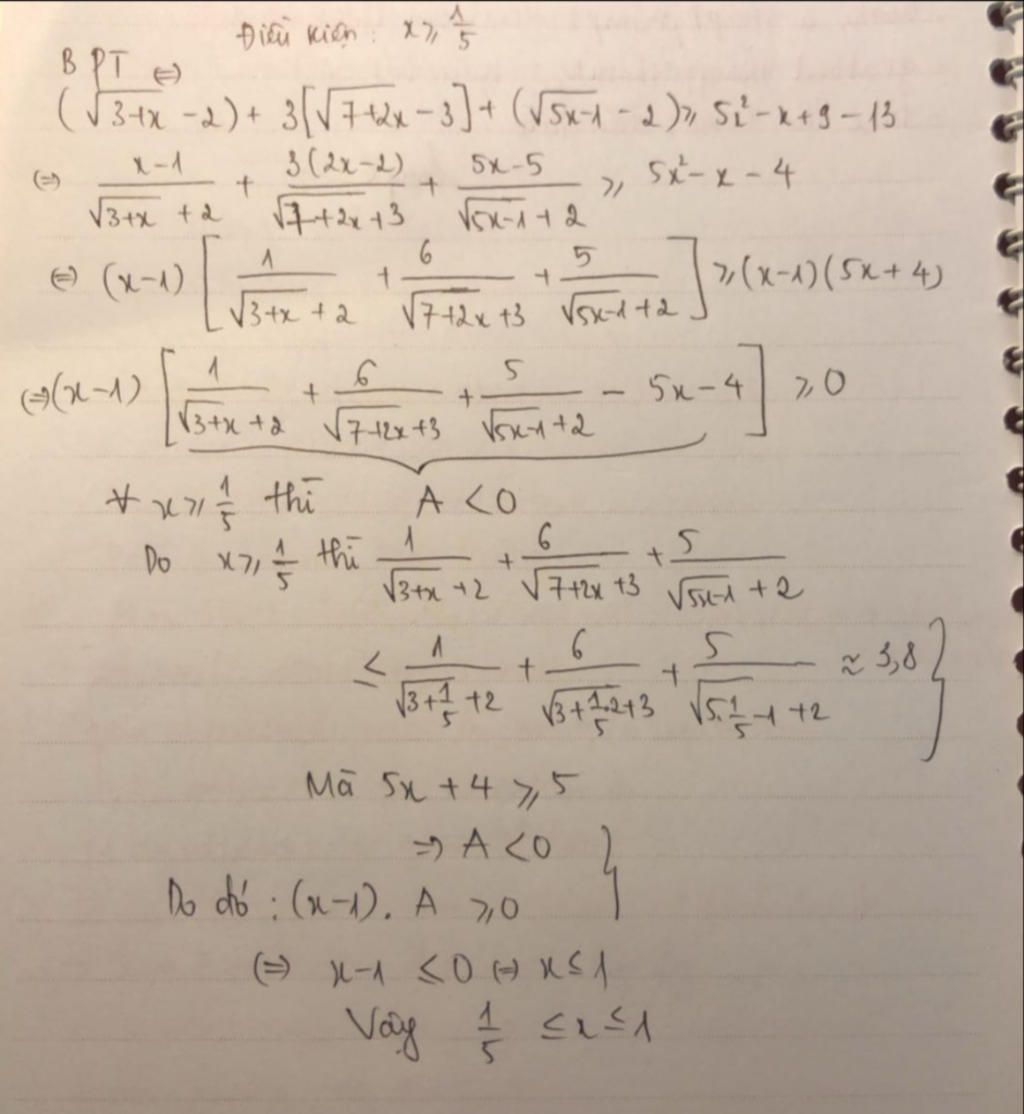 Điều kiện: x ≥ 1/5
BPT ⇔
(√(3+x) - 2) + 3[√(7+2x) - 3] + (√(5x-1) - 2) ≥ 5x² - x + 9 - 13
⇔ (x-1)/(√(3+x) + 2) + 3(2x-2)/(√(7+2x) + 3) + (5x-5)/(√(5x-1) + 2) ≥ 5x² - x - 4
⇔ (x-1) [1/(√(3+x) + 2) + 6/(√(7+2x) + 3) + 5/(√(5x-1) + 2)] ≥ (x-1)(5x+4)
⇔ (x-1) [1/(√(3+x) + 2) + 6/(√(7+2x) + 3) + 5/(√(5x-1) + 2) - 5x - 4] ≥ 0
∀ x ≥ 1/5 thì A < 0
Do x ≥ 1/5 thì 1/(√(3+x) + 2) + 6/(√(7+2x) + 3) + 5/(√(5x-1) + 2)
≤ 1/(√(3+1/5) + 2) + 6/(√(3+1/5.2) + 3) + 5/(√(5.1/5-1) + 2) ≈ 3,8 }
Mà 5x + 4 ≥ 5
⇒ A < 0 }
Do đó : (x-1). A ≥ 0
⇔ x-1 ≤ 0 ⇔ x ≤ 1
Vậy 1/5 ≤ x ≤ 1